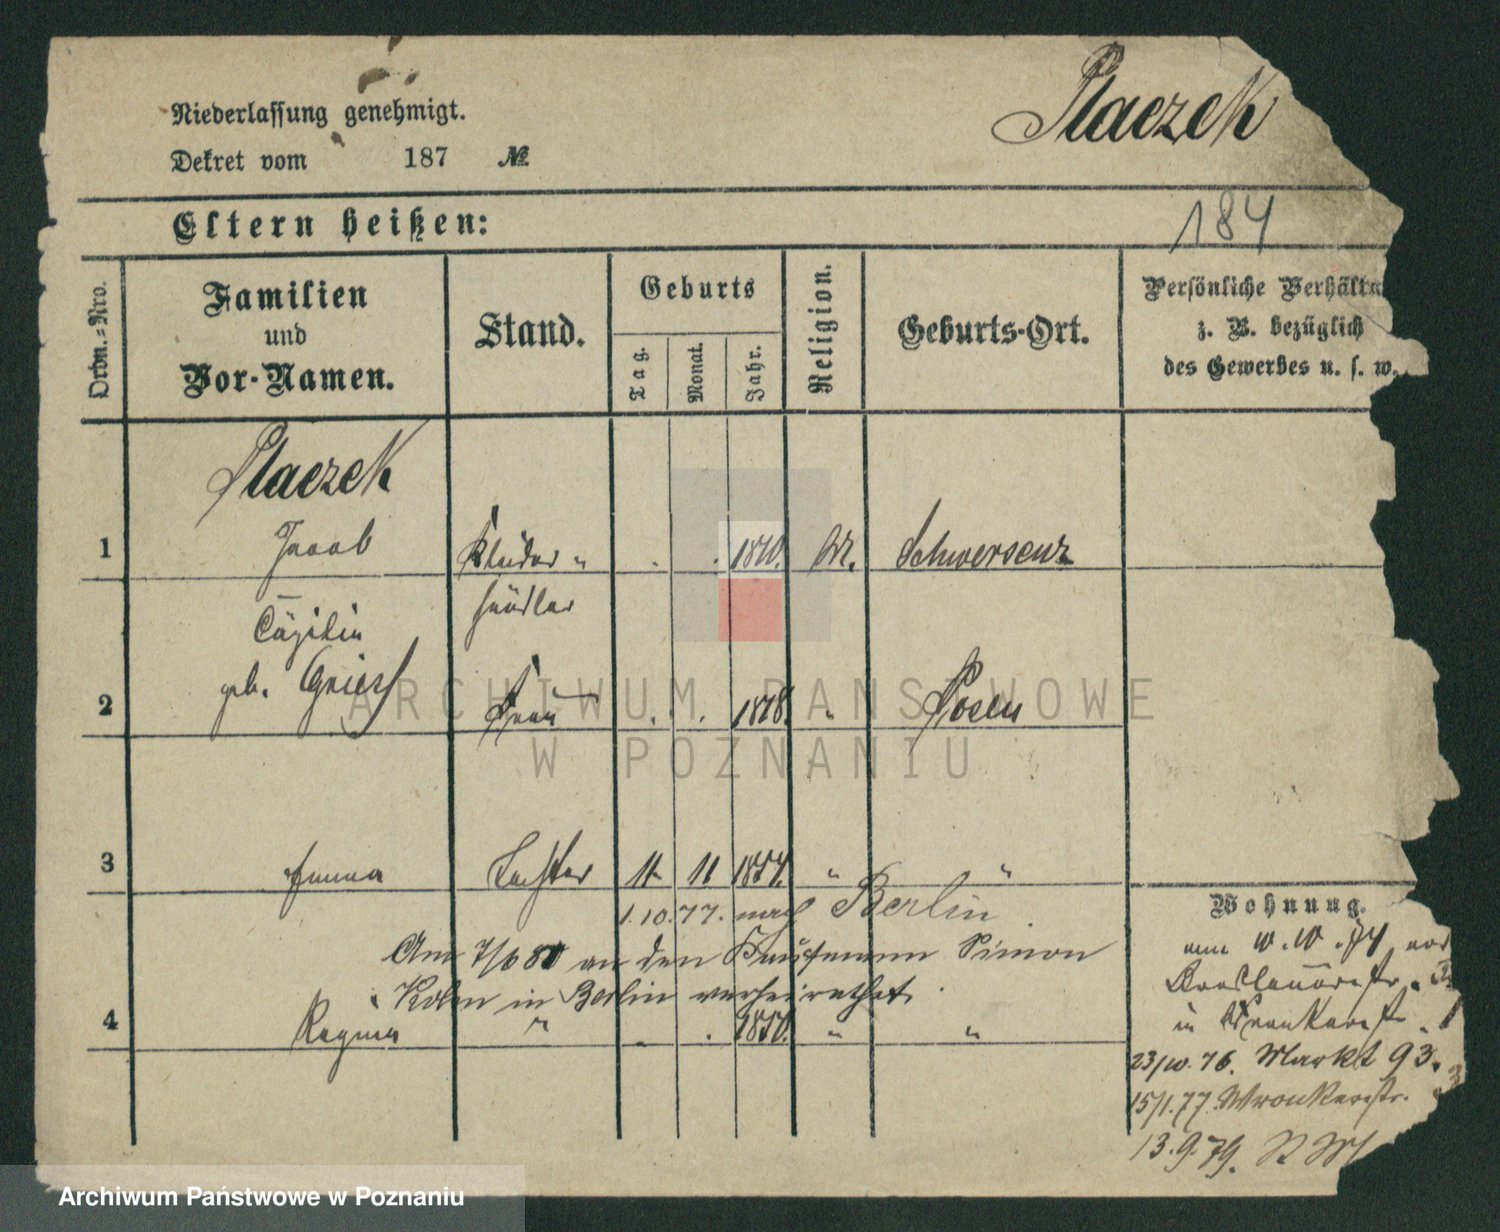 Niederlassung genehmigt.
Staczek
Dekret vom 187 №
Eltern heißen:
184
Ordn.-Nro.
Familien
und
Vor-Namen.
Stand.
Geburts
Tag.
Monat.
Jahr.
Religion.
Geburts-Ort.
Persönliche Verhältn
z. B. bezüglich
des Gewerbes u. s. w.
Staczek
1 Jacob Kleider- 1810. Schwersenz
händler
Cäzilie
geb.
2 Frau 1818. " Posen
3 Emma Tochter 11 11 1857. " "
1.10.77. nach Berlin
Am 7/6 80 an den Kaufmann Simon
Kolm in Berlin verheirathet.
4 Regina " 1850. " "
Wohnung.
in Wronkerstr.
23/10. 76. Markt 93.
15/1.77. Wronkerstr.
13.9.79.
ARCHIWUM PAŃSTWOWE
W POZNANIU
Archiwum Państwowe w Poznaniu